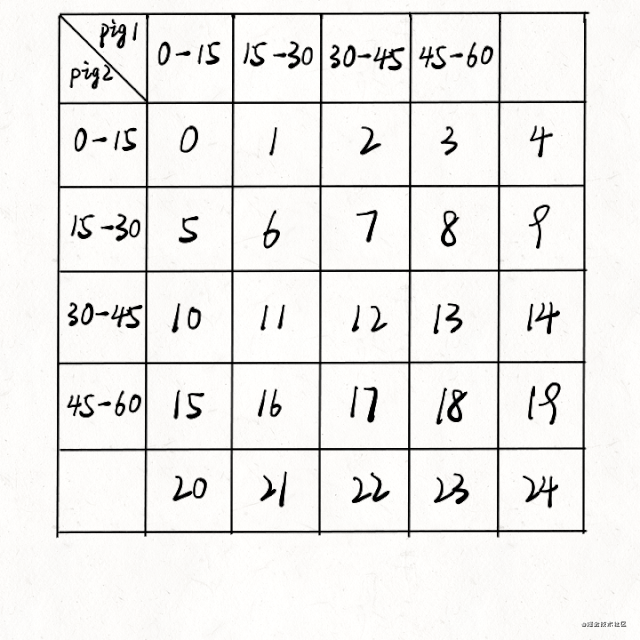 pig1
pig2
0-15 15-30 30-45 45-60
0-15 0 1 2 3 4
15-30 5 6 7 8 9
30-45 10 11 12 13 14
45-60 15 16 17 18 19
20 21 22 23 24
@掘金技术社区